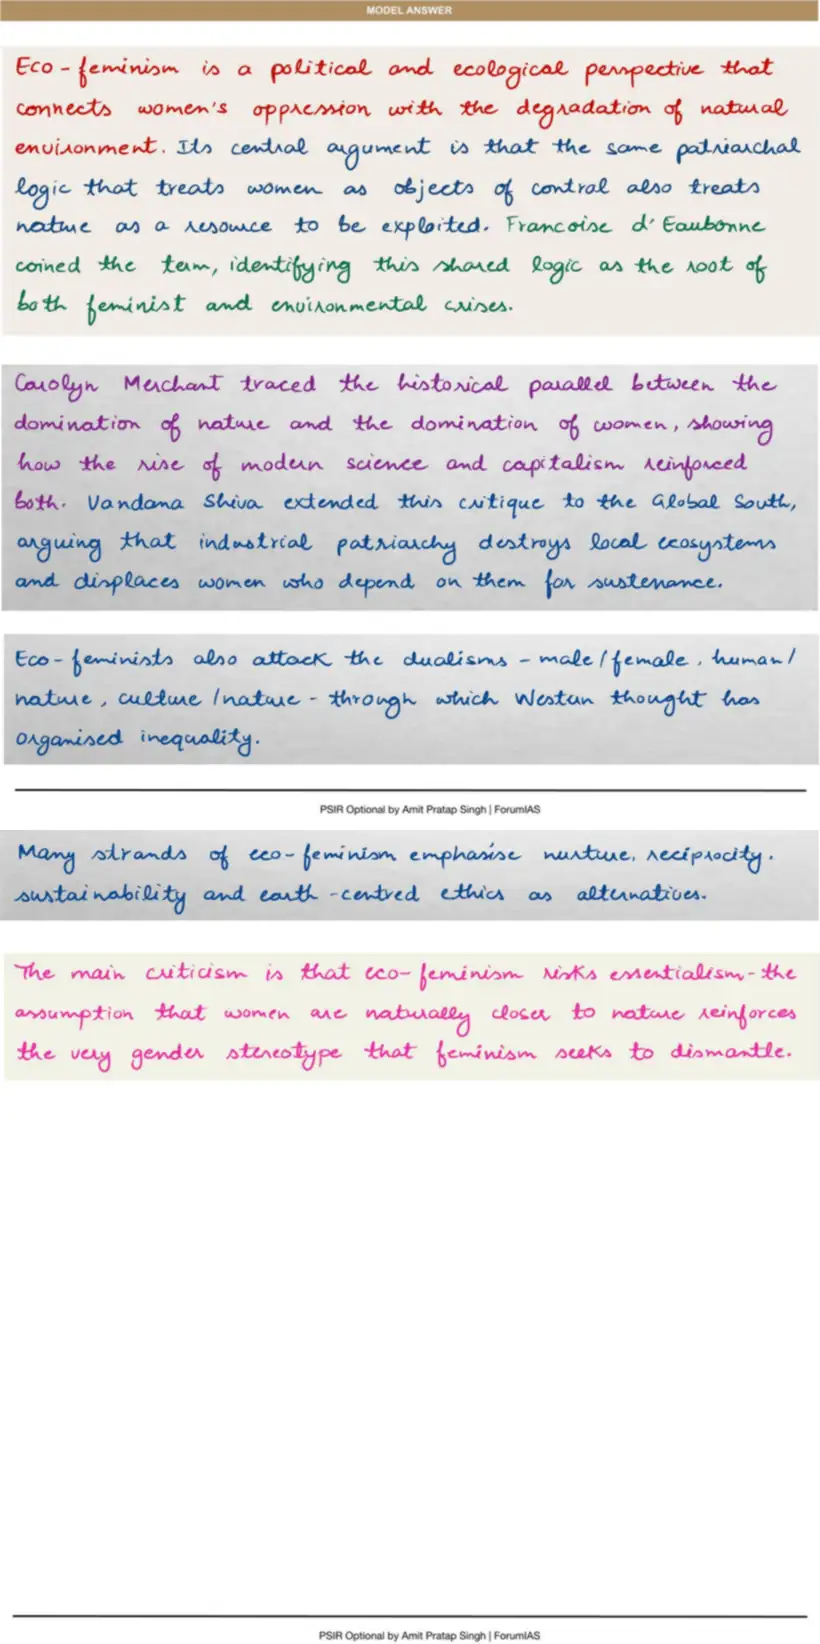 MODEL ANSWER
Eco-feminism is a political and ecological perspective that
connects women's oppression with the degradation of natural
environment. Its central argument is that the same patriarchal
logic that treats women as objects of control also treats
nature as a resource to be exploited. Francoise d'Eaubonne
coined the term, identifying this shared logic as the root of
both feminist and environmental crises.
Carolyn Merchant traced the historical parallel between the
domination of nature and the domination of women, showing
how the rise of modern science and capitalism reinforced
both. Vandana Shiva extended this critique to the Global South,
arguing that industrial patriarchy destroys local ecosystems
and displaces women who depend on them for sustenance.
Eco-feminists also attack the dualisms - male/female, human/
nature, culture/nature - through which Western thought has
organised inequality.
PSIR Optional by Amit Pratap Singh | ForumIAS
Many strands of eco-feminism emphasise nurture, reciprocity,
sustainability and earth-centred ethics as alternatives.
The main criticism is that eco-feminism risks essentialism - the
assumption that women are naturally closer to nature reinforces
the very gender stereotype that feminism seeks to dismantle.
PSIR Optional by Amit Pratap Singh | ForumIAS